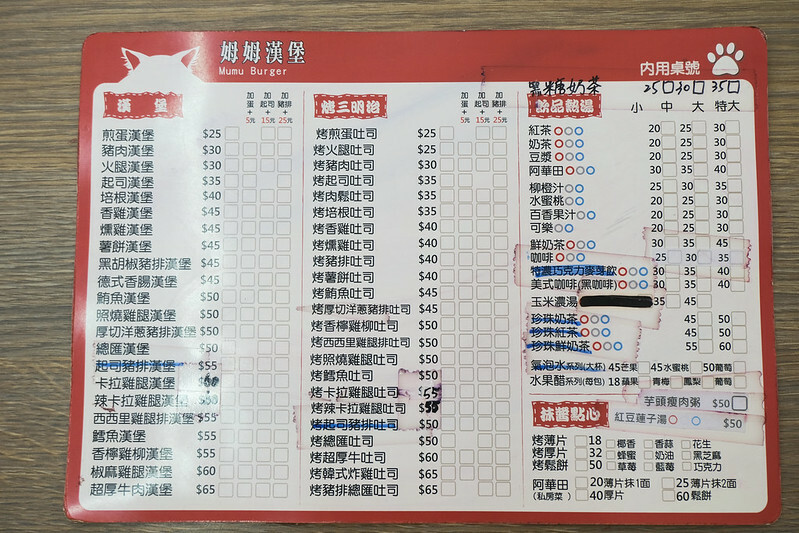 姆姆漢堡
Mumu Burger
內用桌號
漢堡
加蛋+5元 加起司+15元 加豬排+25元
煎蛋漢堡 $25
豬肉漢堡 $30
火腿漢堡 $30
起司漢堡 $35
培根漢堡 $40
香雞漢堡 $45
燻雞漢堡 $45
薯餅漢堡 $45
黑胡椒豬排漢堡 $45
德式香腸漢堡 $45
鮪魚漢堡 $50
照燒雞腿漢堡 $50
厚切洋蔥豬排漢堡 $50
總匯漢堡 $50
起司豬排漢堡 $55
卡拉雞腿漢堡
辣卡拉雞腿漢堡
西西里雞腿排漢堡 $55
鱈魚漢堡 $55
香檸雞柳漢堡 $55
椒麻雞腿漢堡 $60
超厚牛肉漢堡 $65
烤三明治
加蛋+5元 加起司+15元 加豬排+25元
烤煎蛋吐司 $25
烤火腿吐司 $30
烤豬肉吐司 $30
烤起司吐司 $35
烤肉鬆吐司 $35
烤培根吐司 $35
烤香雞吐司 $40
烤燻雞吐司 $40
烤豬排吐司 $40
烤薯餅吐司 $40
烤鮪魚吐司 $45
烤厚切洋蔥豬排吐司 $45
烤香檸雞柳吐司 $50
烤西西里雞腿排吐司 $50
烤照燒雞腿吐司 $50
烤鱈魚吐司 $50
烤卡拉雞腿吐司 55
烤辣卡拉雞腿吐司
烤起司豬排吐司 $50
烤總匯吐司 $50
烤超厚牛吐司 $60
烤韓式炸雞吐司 $60
烤豬排總匯吐司 $65
黑糖奶茶 25 30 35
飲品熱湯 小 中 大 特大
紅茶 20 25 30
奶茶 20 25 30
豆漿 20 25 30
阿華田 30 35 40
柳橙汁 25 30 35
水蜜桃 20 25 30
百香果汁 20 25 30
可樂 20 25 30
鮮奶茶 30 35 45
咖啡 25 30 35
特濃巧克力麥芽飲 30 35 40
美式咖啡(黑咖啡) 30 35 40
玉米濃湯 35 45
珍珠奶茶 45 50
珍珠紅茶 45 50
珍珠鮮奶茶 55 60
氣泡水系列(大杯) 45芒果 45水蜜桃 50葡萄
水果醋系列(每包) 18蘋果 青梅 鳳梨 葡萄
芋頭瘦肉粥 $50
紅豆蓮子湯 $50
抹醬點心
烤薄片 18 椰香 香蒜 花生
烤厚片 32 蜂蜜 奶油 黑芝麻
烤鬆餅 50 草莓 藍莓 巧克力
阿華田 20薄片抹1面 25薄片抹2面
(私房菜) 40厚片 60鬆餅